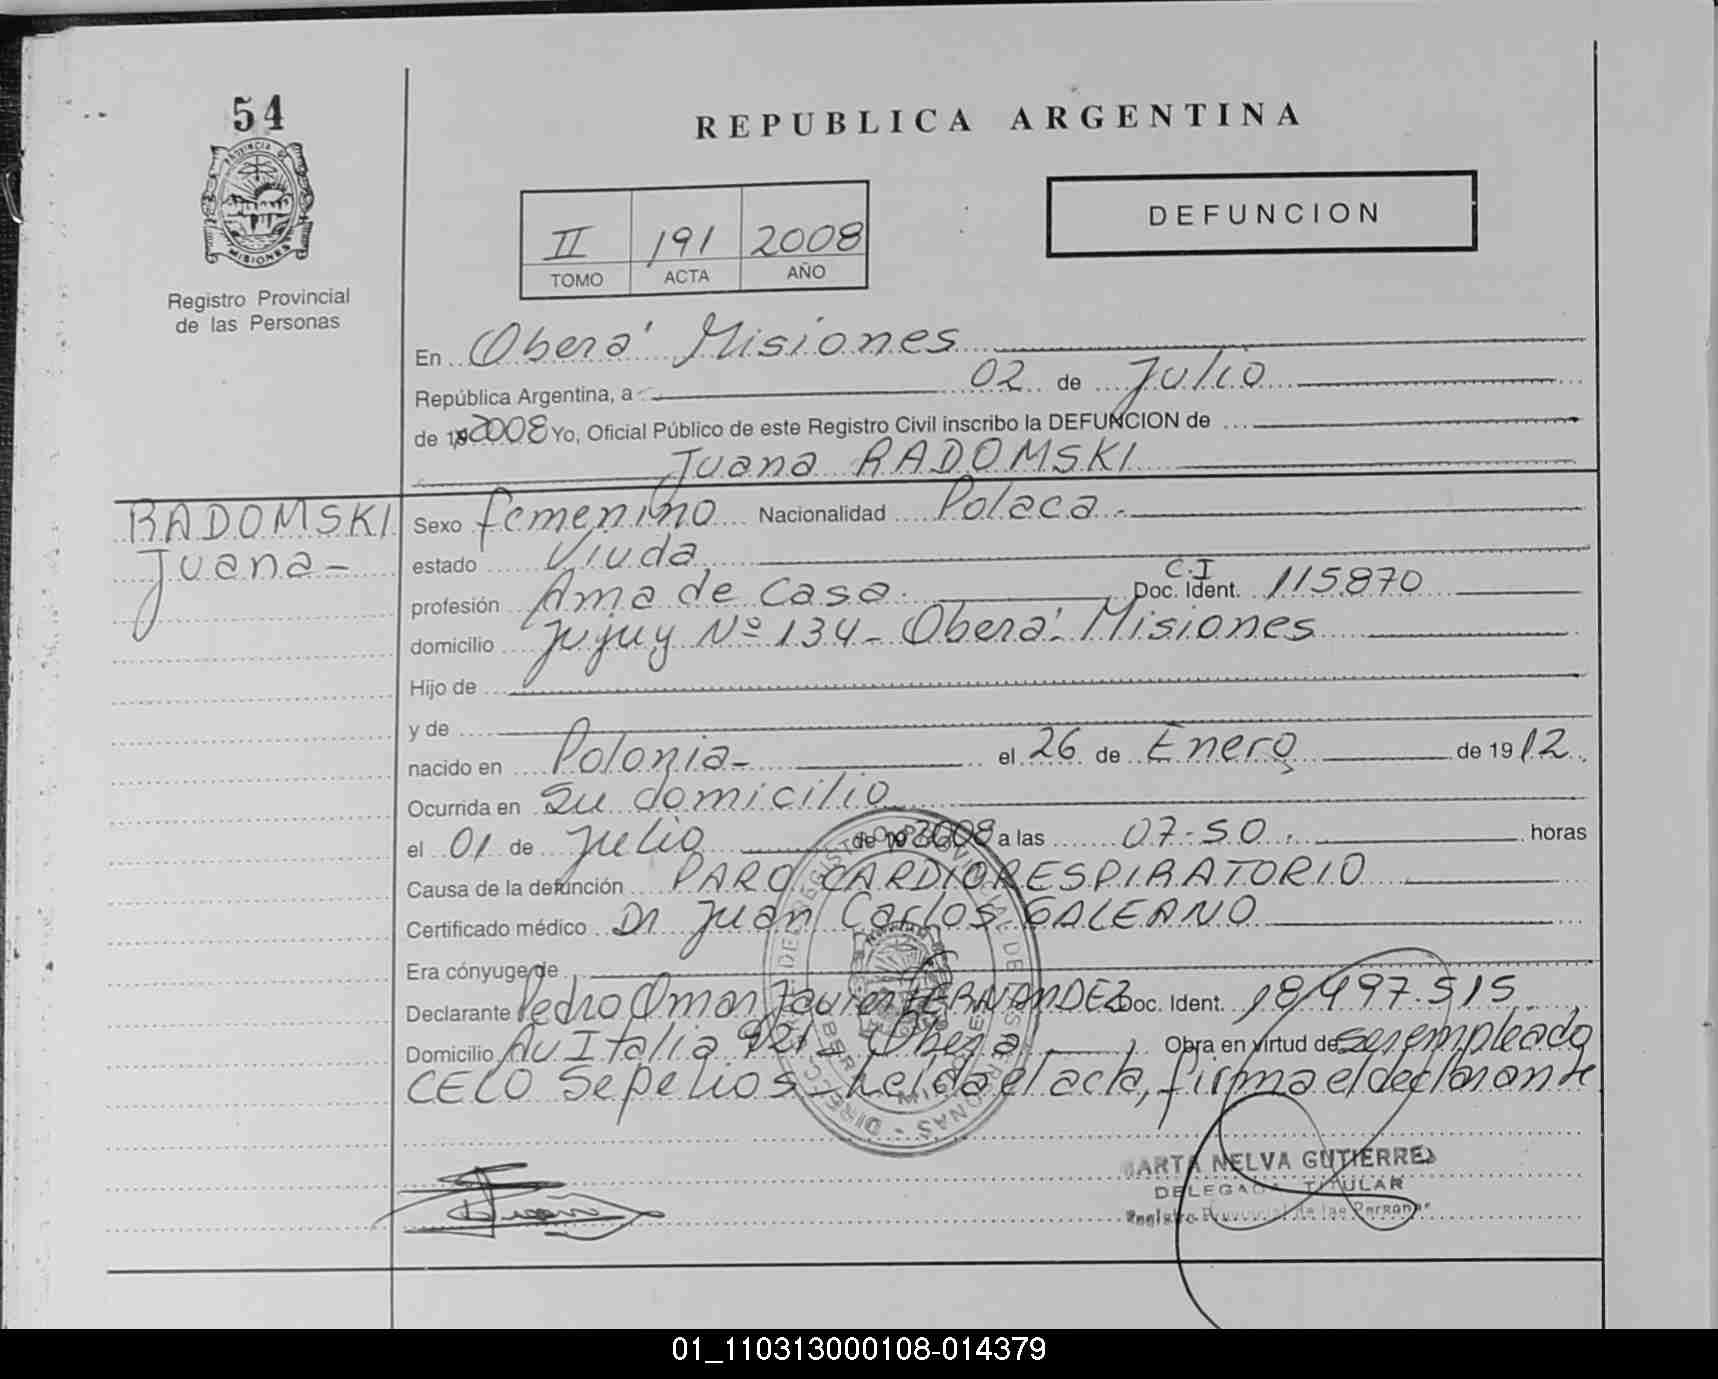 54
PROVINCIA DE
MISIONES
Registro Provincial
de las Personas
REPUBLICA ARGENTINA
II 191 2008
TOMO ACTA AÑO
DEFUNCION
En Oberá Misiones
República Argentina, a 02 de Julio
de 19 2008 Yo, Oficial Público de este Registro Civil inscribo la DEFUNCION de
Juana RADOMSKI
RADOMSKI
Juana
Sexo femenino Nacionalidad Polaca.
estado Viuda
profesión Ama de Casa. Doc. Ident. C.I 115870
domicilio Jujuy Nº 134 - Oberá. Misiones
Hijo de
y de
nacido en Polonia el 26 de Enero de 1912
Ocurrida en Su domicilio
el 01 de Julio de 19 2008 a las 07-50. horas
Causa de la defunción PARO CARDIORESPIRATORIO
Certificado médico Dr Juan Carlos GALEANO
Era cónyuge de
Declarante Pedro Omar Javier HERNANDEZ Doc. Ident. 18.497.515
Domicilio Av Italia 921 - Oberá Obra en virtud de ser empleado
CELO Sepelios - Leída el acta, firma el declarante
MARTA NELVA GUTIERREZ
DELEGADA TITULAR
Registro Provincial de las Personas
01_110313000108-014379